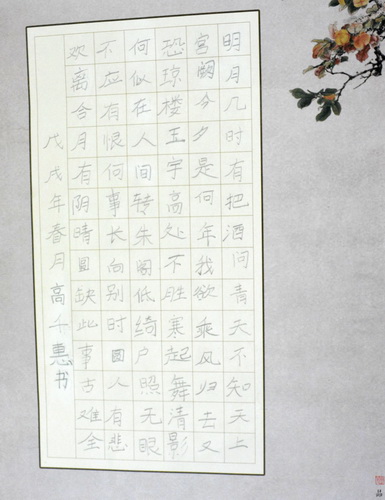 明月几时有把酒问青天不知天上
宫阙今夕是何年我欲乘风归去又
恐琼楼玉宇高处不胜寒起舞清影
何似在人间转朱阁低绮户照无眠
不应有恨何事长向别时圆人有悲
欢离合月有阴晴圆缺此事古难全
戊戌年春月高千惠书